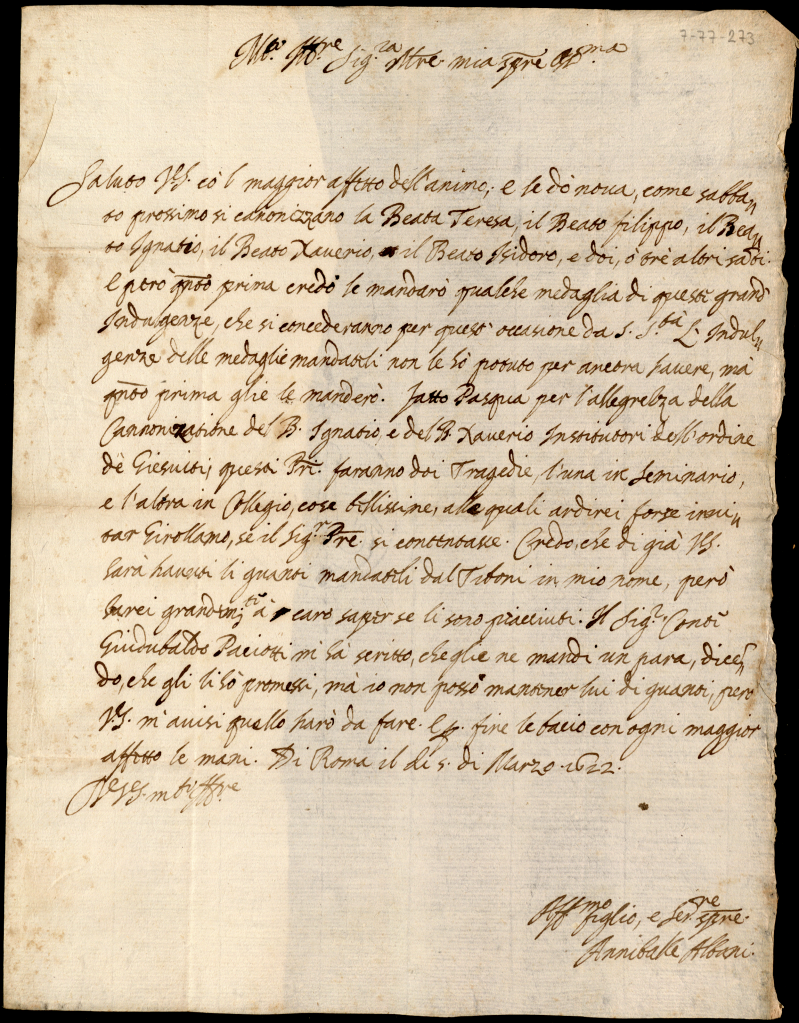 7-77-273
Mto. Ill.re Sig.ra Mre. mia sp̄re oss.ma
Saluto V.S. cō l maggior affetto dell'animo; e le dò nova, come sabba„
to prossimo si canonizzano la Beata Teresa, il Beato filippo, il Bea„
to Ignatio, il Beato Xaverio, il Beato Isidoro, e doi, ò trè altri sāti.
e però qnto prima credo le mandarò qualche medaglia di questi grandi
Indulgenze, che si concederanno per quest' occasione da S. S.tà L' Indul„
genze delle medaglie mandatili non le hò potuto per ancora havere, mà
qnto prima glie le manderò. fatto Pasqua per l'allegrezza della
Cannonizatione del B. Ignatio, e del B. Xaverio Institutori dell'ordine
dè Giesuiti; questi Pri. faranno doi Tragedie, l'una in Seminario,
e l'altra in Collegio, cose bellissime, alle quali ardirei forse invi„
tar Girollamo, se il Sig.r Pre. si contentasse. Credo, che di già V.S.
harà havuti li guanti mandatili dal Tiboni in mio nome, però
harei à caro saper se li sono piacciuti. Il Sig.r Conte
Guidubaldo Paciotti m'hà scritto, che glie ne mandi un para, dicē„
do, che gli li hò promessi, mà io non posso mantener lui di guanti, però
V.S. m'avisi quello harò da fare. E p. fine le bacio con ogni maggior
affetto le mani. Di Roma il dì 5. di Marzo. 1622.
Di V.S. m.to Ill.re
Aff.mo figlio, e Ser.re sp̄re.
Anniballe Albani.